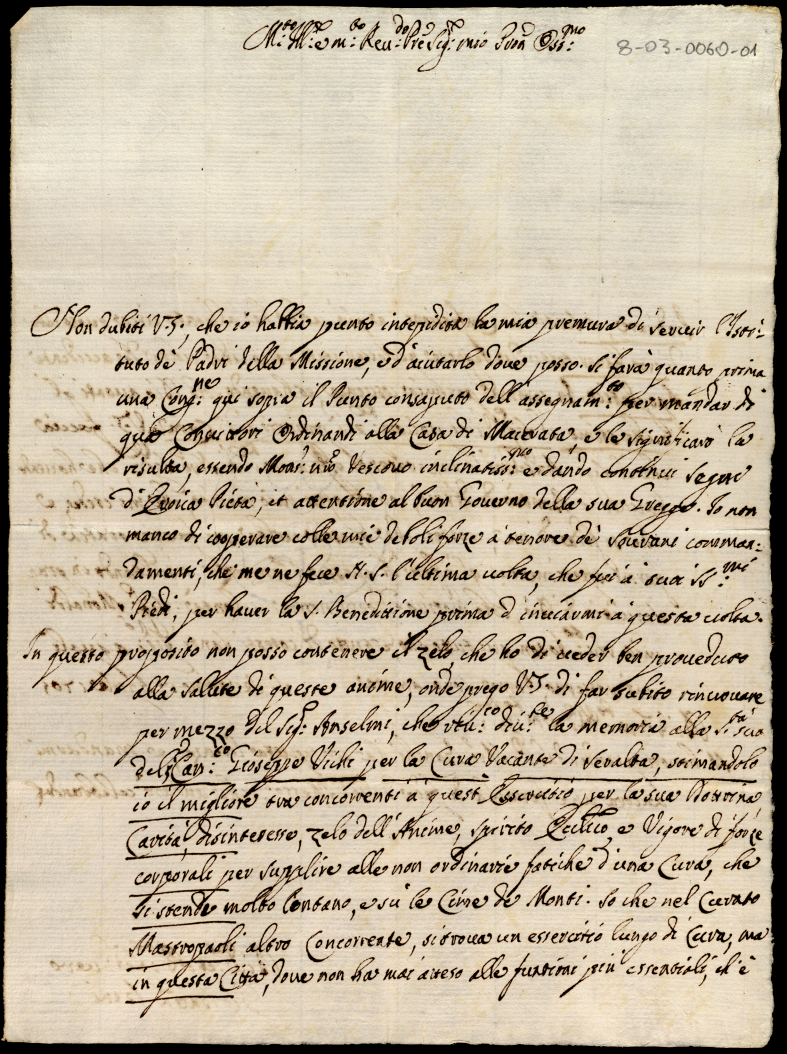 M.to Ill.e e m.to Reu.do P're Sig.r mio P'ron Oss.mo
8-03-0060-01
Non dubiti V.S., che io habbia punto intepidita la mia premura di servir l'Isti-
tuto de Padri della Missione, e d'aiutarlo dove posso. Si farà quanto prima
una Cong.ne qui sopra il Punto consaputo dell'assegnam.to per mandar di
quà Convittori Ordinandi alla Casa di Macerata, e le significarò la
risulta, essendo Mons.r n'ro Vescovo inclinatiss.mo e dando continui segni
d'Eroica Pietà, et attentione al buon Governo della sua Gregge. Io non
manco di cooperare colle mie deboli forze à tenore de Sovrani comman-
damenti, che me ne fece N. S. l'ultima volta, che fui à suoi SS.mi
Piedi, per haver la S. Benedittione prima d'inviarmi a questa volta.
In questo proposito non posso contenere il zelo, che ho di veder ben proveduto
alla salute di queste anime, onde prego V.S. di far subito rinovare
per mezzo del Sig.r Anselmi, che la memoria alla S.tà sua
del Can.co Gioseppe Vichi per la Cura Vacante di Seralta, stimandolo
io il migliore tra concorrenti à quest'Essercitio per la sua Dottrina
Carità, disinteresse, zelo dell'Anime, spirito Eccl.ico, e Vigore di forze
corporali per supplire alle non ordinarie fatiche d'una Cura, che
si stende molto lontano, e sù le Cime de Monti. So che nel Curato
Mastropaoli altro Concorrente, si trova un essercitio lungo di Cura, ma
in questa Città, dove non ha mai atteso alle funtioni più essentiali, ch'è